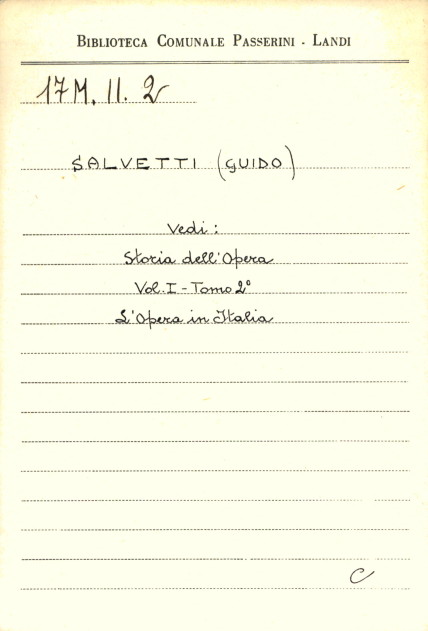 BIBLIOTECA COMUNALE PASSERINI - LANDI
17 M. II. 2
SALVETTI (GUIDO)
Vedi:
Storia dell'Opera
Vol. I - Tomo 2°
L'Opera in Italia
C